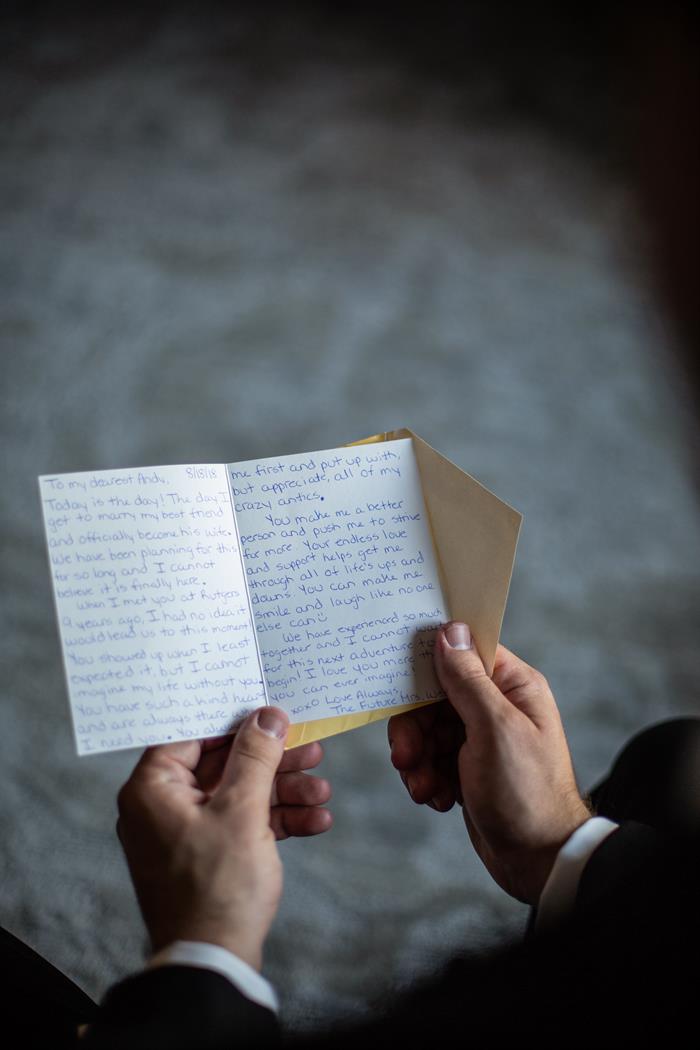 To my dearest Andy, 8/18/18
Today is the day! The day I
get to marry my best friend
and officially become his wife.
We have been planning for this
for so long and I cannot
believe it is finally here.
When I met you at Rutgers
9 years ago, I had no idea it
would lead us to this moment
You showed up when I least
expected it, but I cannot
imagine my life without you.
You have such a kind heart
and are always there when
I need you. You always
me first and put up with,
but appreciate, all of my
crazy antics.
You make me a better
person and push me to strive
for more. Your endless love
and support helps get me
through all of life's ups and
downs. You can make me
smile and laugh like no one
else can
We have experienced so much
together and I cannot wait
for this next adventure to
begin! I love you more than
you can ever imagine.
xoxo Love Always,
The Future Mrs.